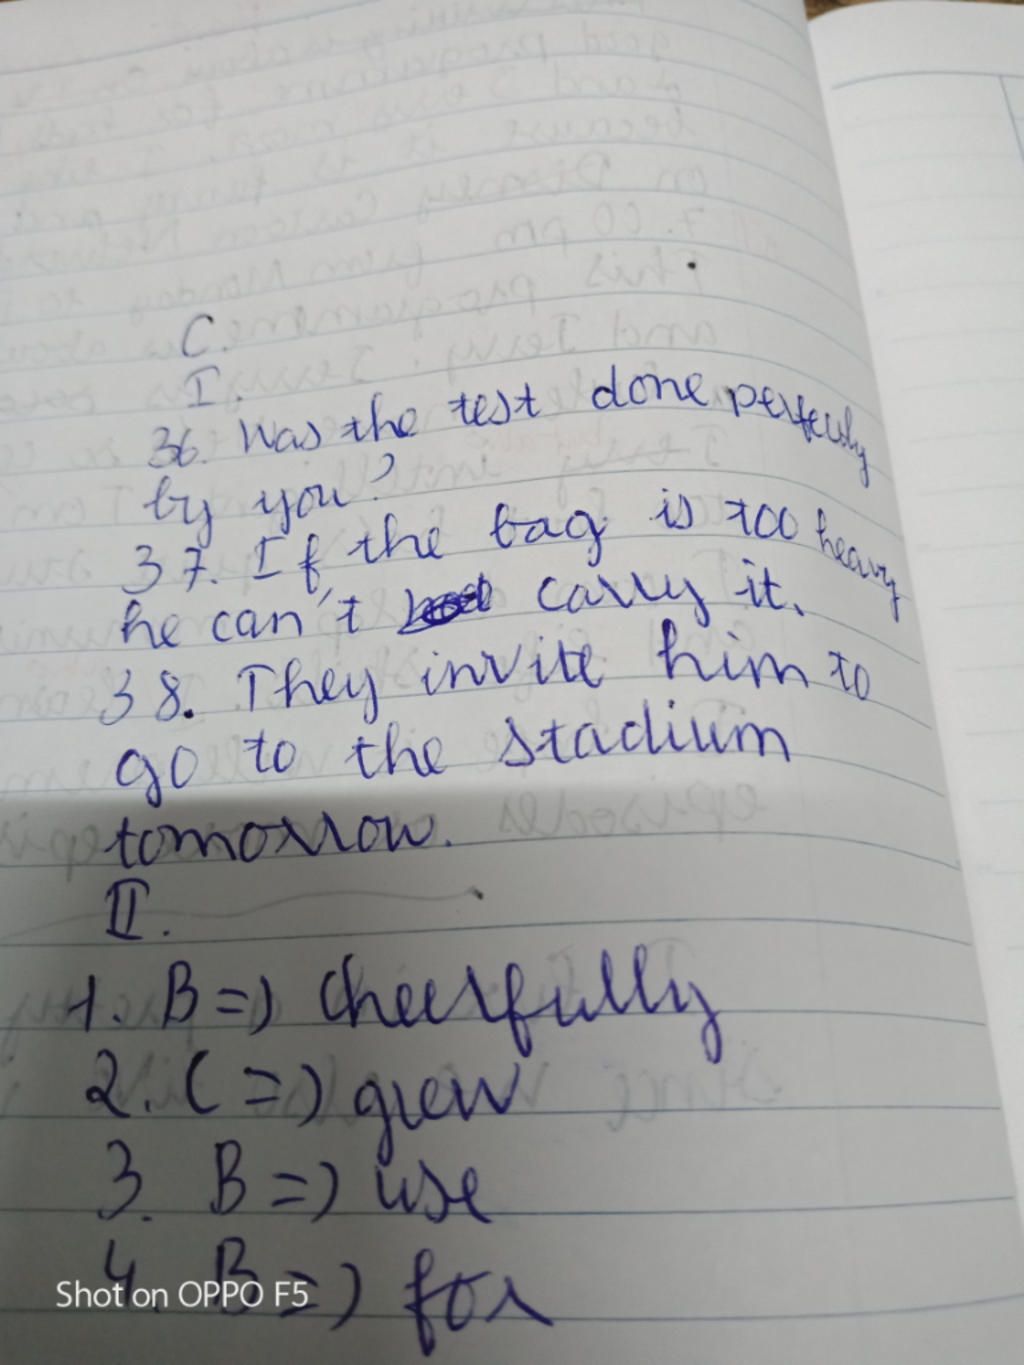 C.
I.
36. Was the test done perfectly
by you?
37. If the bag is too heavy
he can't carry it.
38. They invite him to
go to the stadium
tomorrow.
II.
1. B => cheerfully
2. C => grew
3. B => use
4. B => for
Shot on OPPO F5